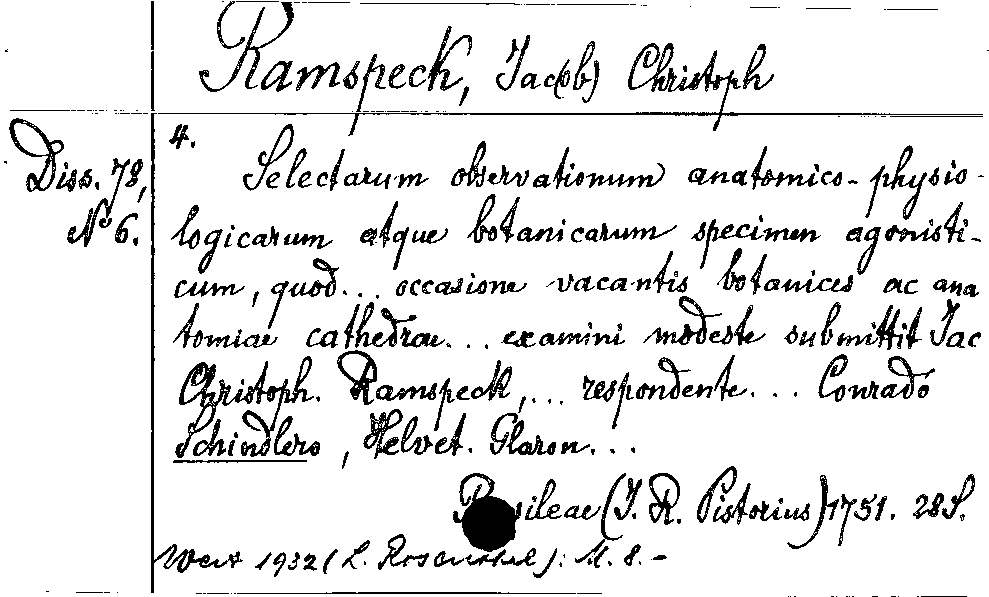 Ramspeck, Jac(ob) Christoph
4.
Diss. 78,
No 6.
Selectarum observationum anatomico-physio-
logicarum atque botanicarum specimen agonisti-
cum, quod... occasione vacantis botanices ac ana
tomiae cathedrae... examini modeste submittit Jac
Christoph. Ramspeck,... respondente... Conrado
Schindlero, Helvet. Glaron...
Basileae (J. R. Pistorius) 1751. 28 S.
Wert 1932 (L. Rosenthal): M. 8.-